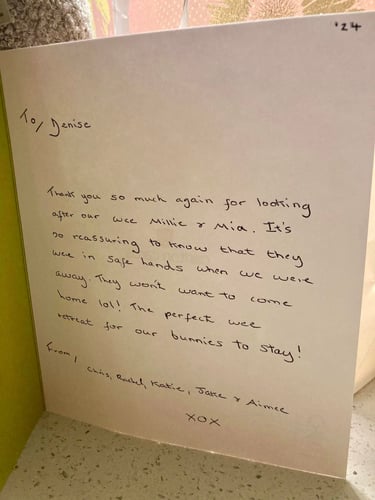 '24
To/ Denise
Thank you so much again for looking
after our wee Millie & Mia. It's
so reassuring to know that they
wee in safe hands when we were
away. They won't want to come
home lol! The perfect wee
retreat for our bunnies to stay!
From,
Chris, Rachel, Katie, Jake & Aimee
XOX